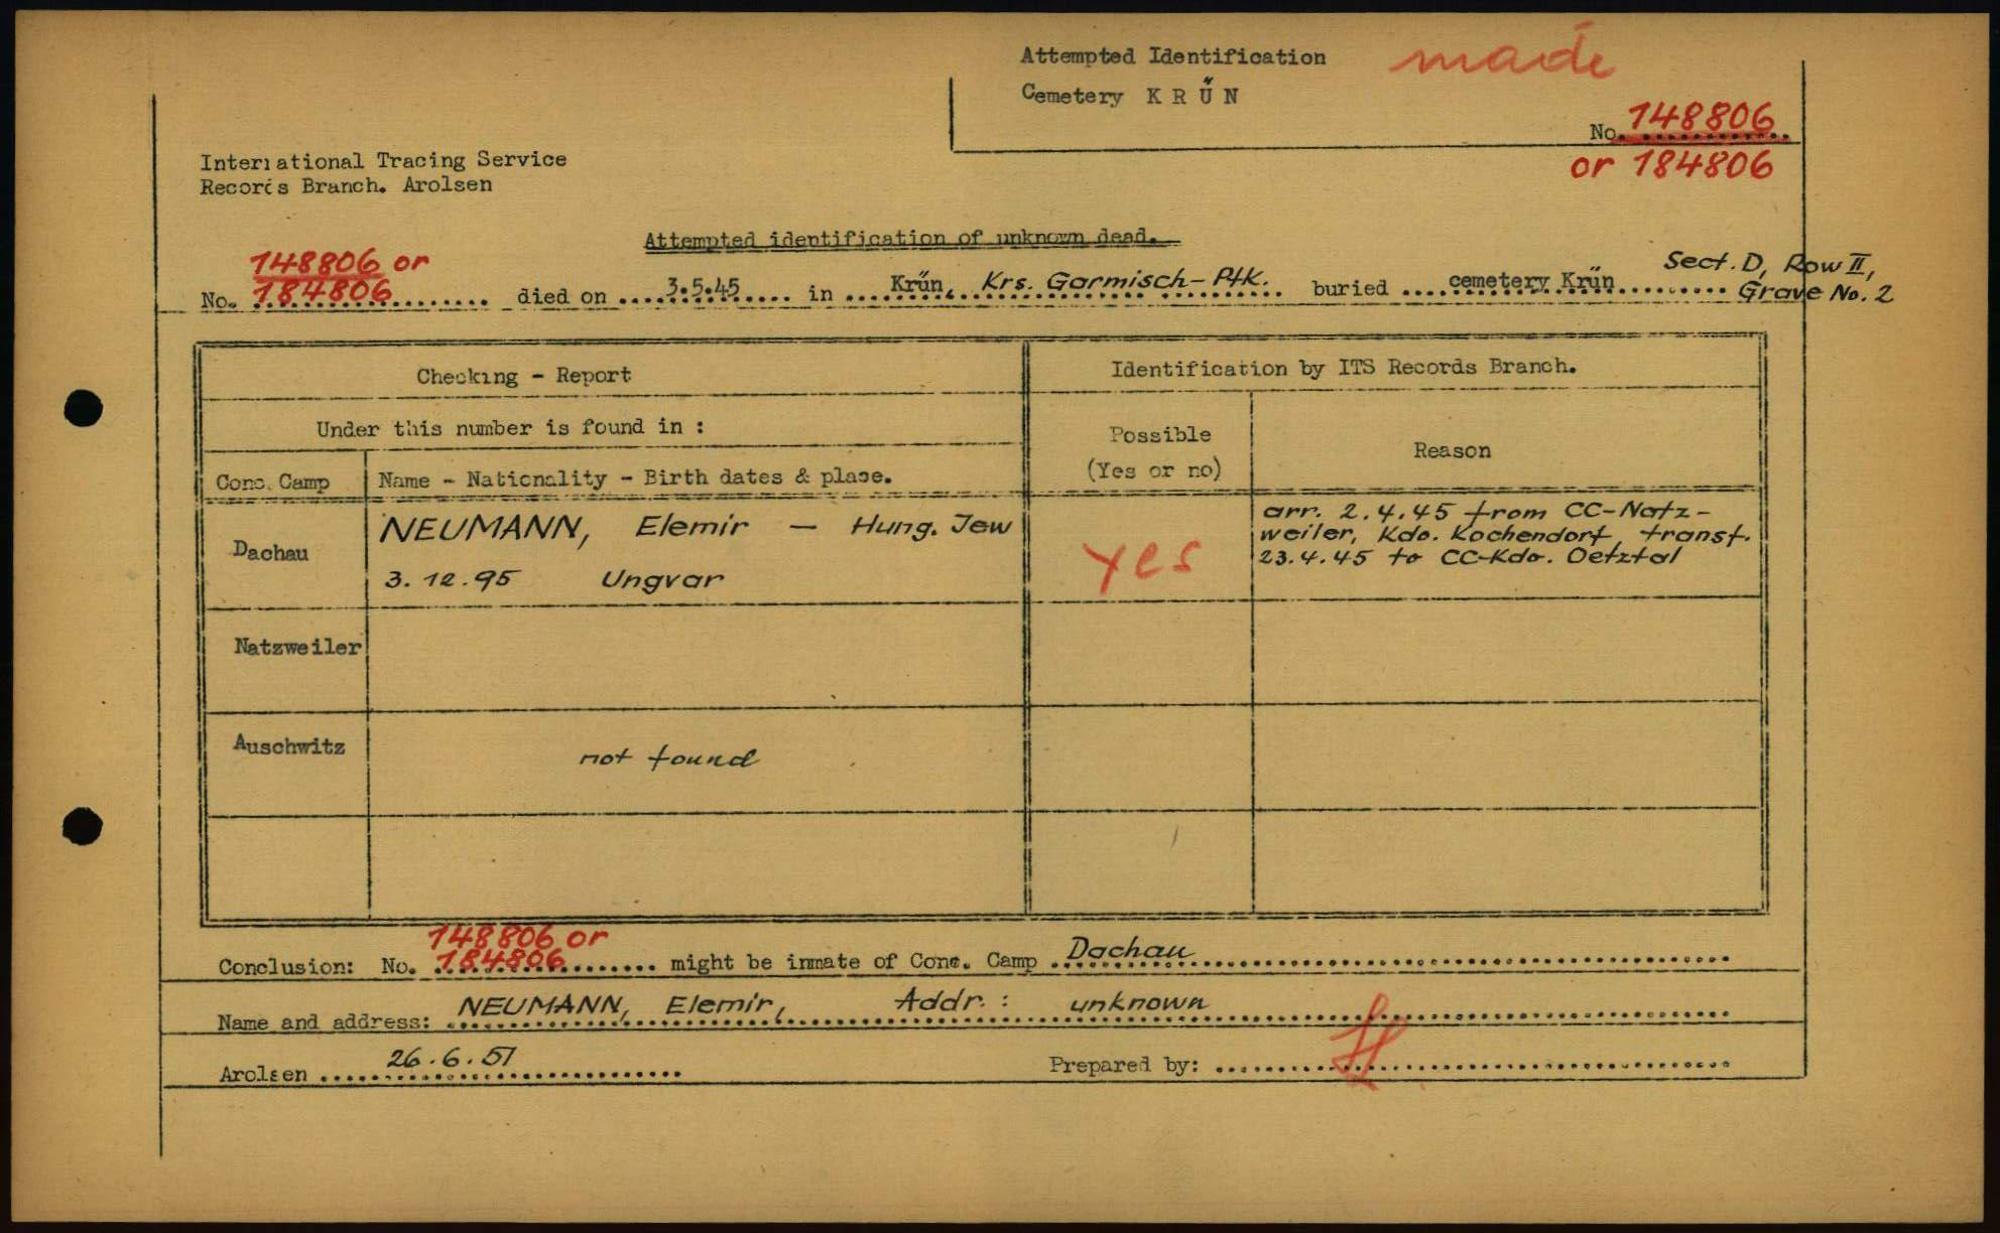 Attempted Identification made
Cemetery KRÜN
No. 148806
or 184806
International Tracing Service
Records Branch. Arolsen
Attempted identification of unknown dead.
148806 or
No. 184806 died on 3.5.45 in Krün, Krs. Garmisch-Ptk. buried cemetery Krün Sect. D, Row II,
Grave No. 2
Checking - Report
Identification by ITS Records Branch.
Under this number is found in :
Possible
(Yes or no)
Reason
Conc. Camp
Name - Nationality - Birth dates & place.
Dachau
NEUMANN, Elemir — Hung. Jew
3.12.95 Ungvar
yes
arr. 2.4.45 from CC-Natz-
weiler, Kdo. Kochendorf, transf.
23.4.45 to CC-Kdo. Oetztal
Natzweiler
Auschwitz
not found
148806 or
Conclusion: No. 184806 might be inmate of Conc. Camp Dachau
Name and address: NEUMANN, Elemir, Addr.: unknown
Arolsen 26.6.51
Prepared by: